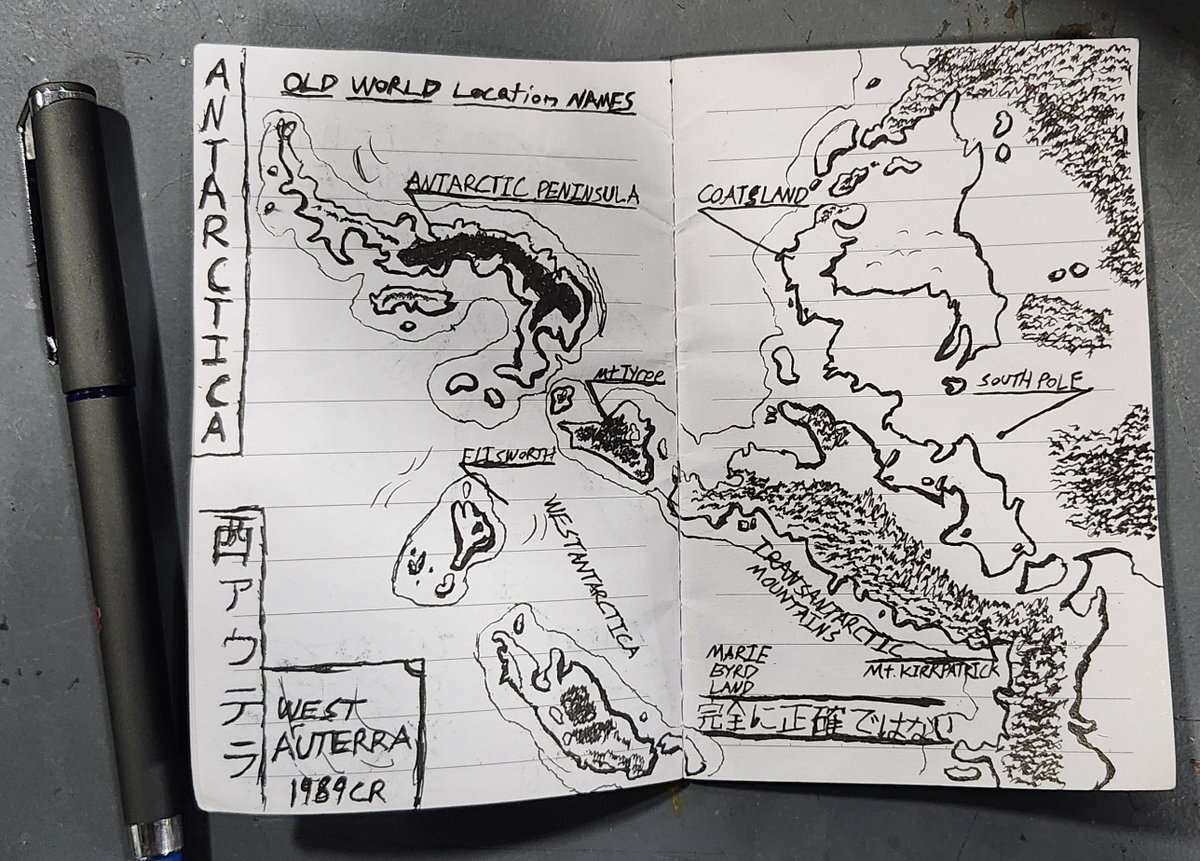 ANTARCTICA
OLD WORLD Location NAMES
ANTARCTIC PENINSULA
COATSLAND
Mt Tyree
SOUTH POLE
ELLSWORTH
WEST ANTARCTICA
TRANSANTARCTIC
MOUNTAINS
MARIE
BYRD
LAND
Mt. KIRKPATRICK
完全に正確ではない
西アウテラ
WEST
AUTERRA
1989CR